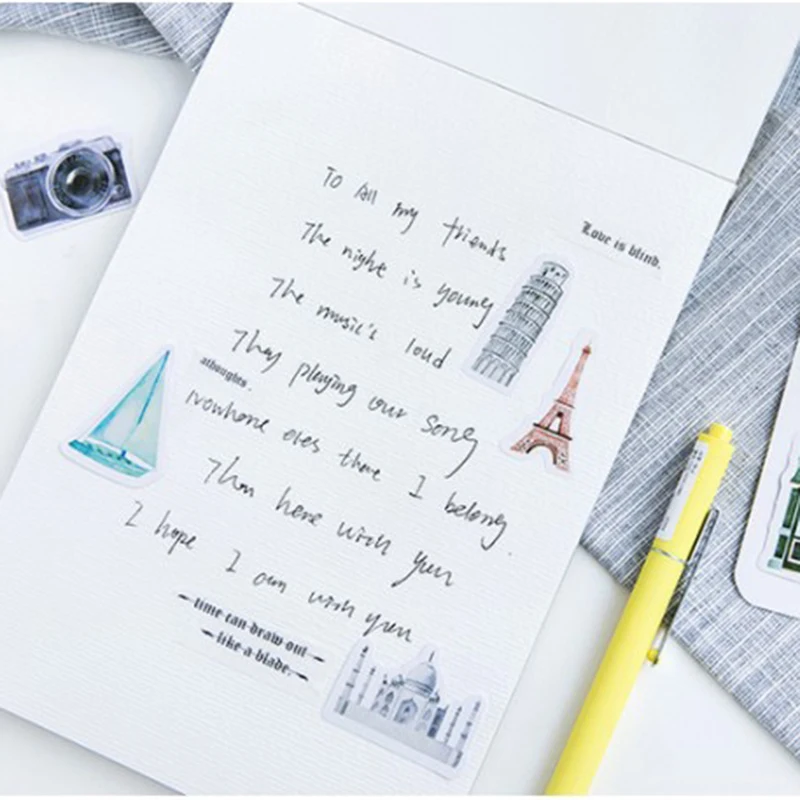 To All my friends
Love is blind.
The night is young
The music's loud
They playing our song
athoughts.
Nowhere over there I belong.
Than here with you
I hope I am with you
time can draw out
like a blade.